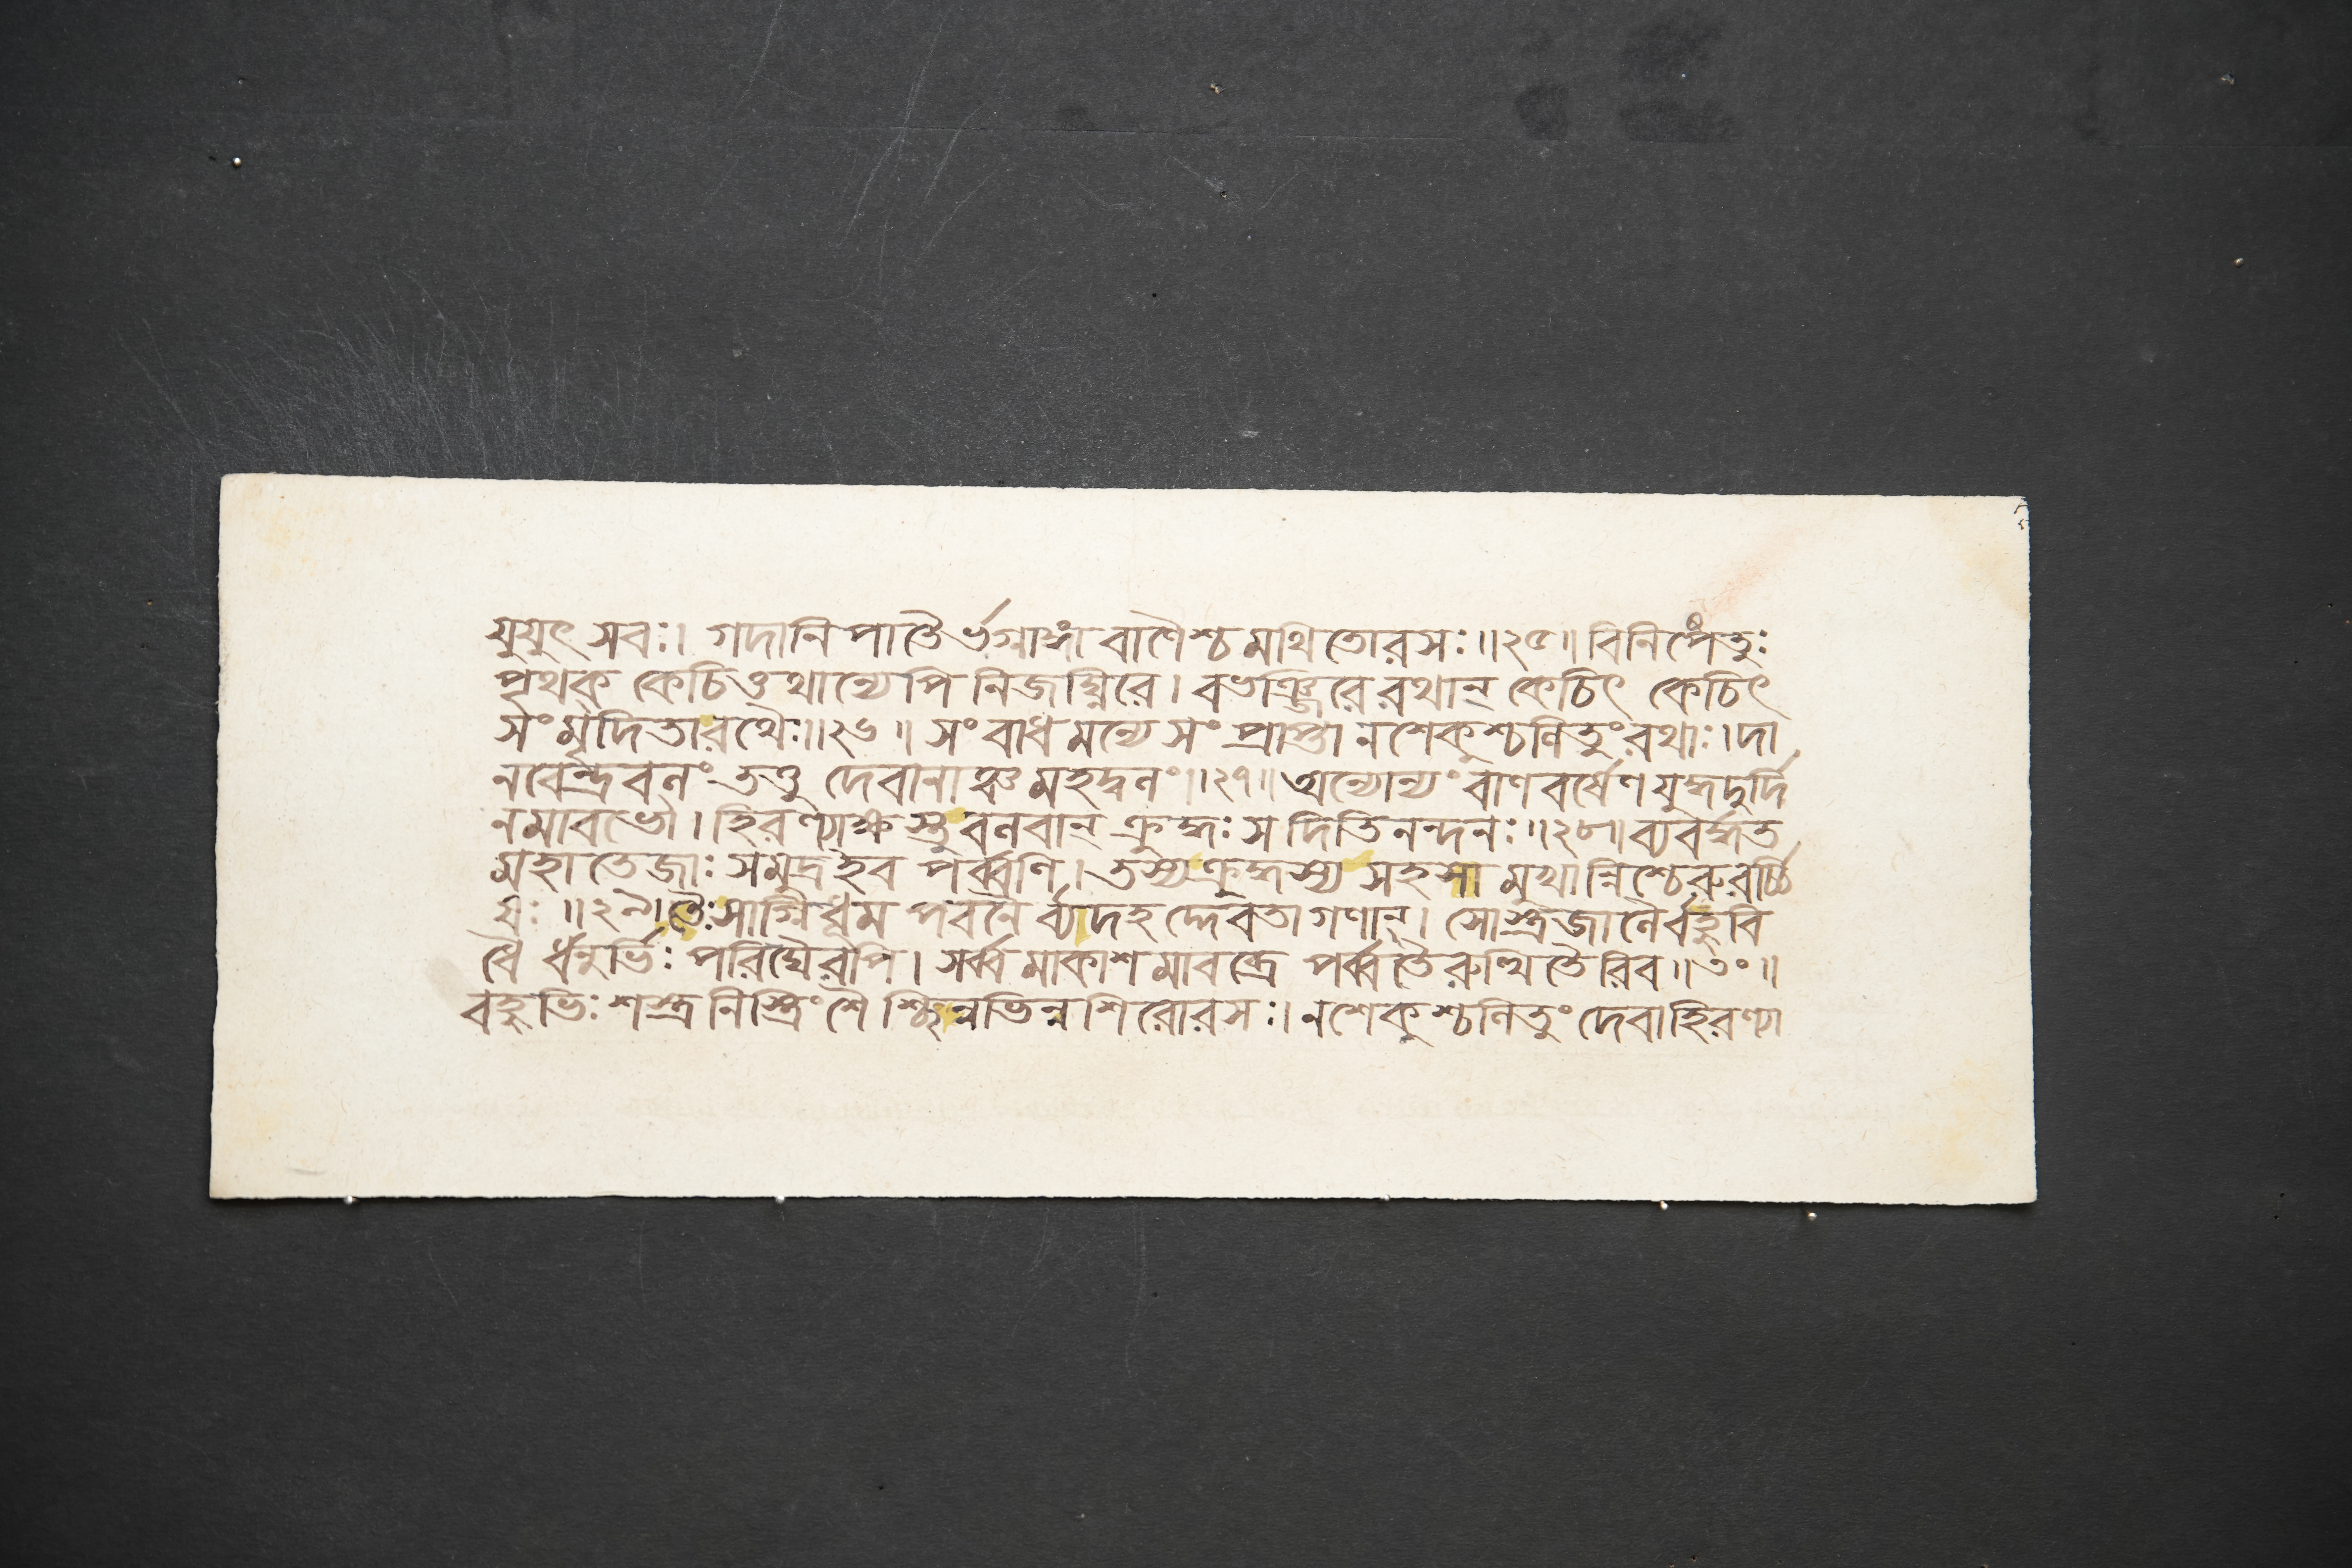 যুযুৎসবঃ। গদানিপাতৈর্ভগ্নাঙ্গা বাণৈশ্চ মথিতোরসঃ॥২৫॥ বিনিপেতুঃ
পৃথক্ কেচিত্তথান্যেপি নিজঘ্নিরে। বভঞ্জিরে রথান্ কেচিৎ কেচিৎ
সংমৃদিতা রথৈঃ॥২৬॥ সংবাধমন্যে সংপ্রাপ্তা ন শেকুশ্চলিতুং রথাঃ। দা
নবেন্দ্রবলং তত্তু দেবানাঞ্চ মহদ্বলং॥২৭॥ অন্যোন্যং বাণবর্ষেণ যুদ্ধদুর্দি
নমাবভৌ। হিরণ্যাক্ষস্তু বলবান্ ক্রুদ্ধঃ স দিতিনন্দনঃ॥২৮॥ ব্যবর্দ্ধত
মহাতেজাঃ সমুদ্র ইব পর্ব্বণি। তস্য ক্রুদ্ধস্য সহসা মুখান্নিশ্চেরুরর্চ্চি
ষঃ॥২৯॥ তৈঃ সাগ্নিধূমপবনৈর্ব্যাদহদ্দেবতাগণান্। সোস্ত্রজালৈর্বহুবি
ধৈর্ধনুর্ভিঃ পরিঘৈরপি। সর্ব্বমাকাশমাবব্রে পর্ব্বতৈরুত্থিতৈরিব॥৩০॥
বহুভিঃ শস্ত্রনিস্ত্রিংশৈশ্ছিন্নভিন্নশিরোরসঃ। ন শেকুশ্চলিতুং দেবা হিরণ্যা